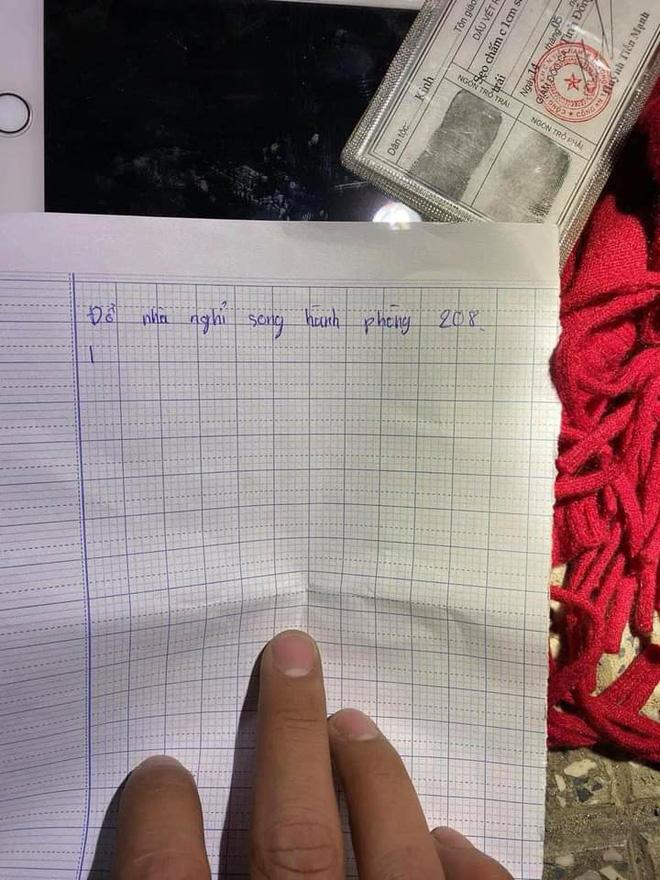 Tôn giáo
DẤU VẾT R
Sẹo chấm c 1cm s
trái
Dân tộc: Kinh
NGÓN TRỎ TRÁI
NGÓN TRỎ PHẢI
Ngày 14 tháng 05
GIÁM ĐỐC
Huỳnh Tiến Mạnh
Đồ nhà nghỉ song hành phòng 208.
1